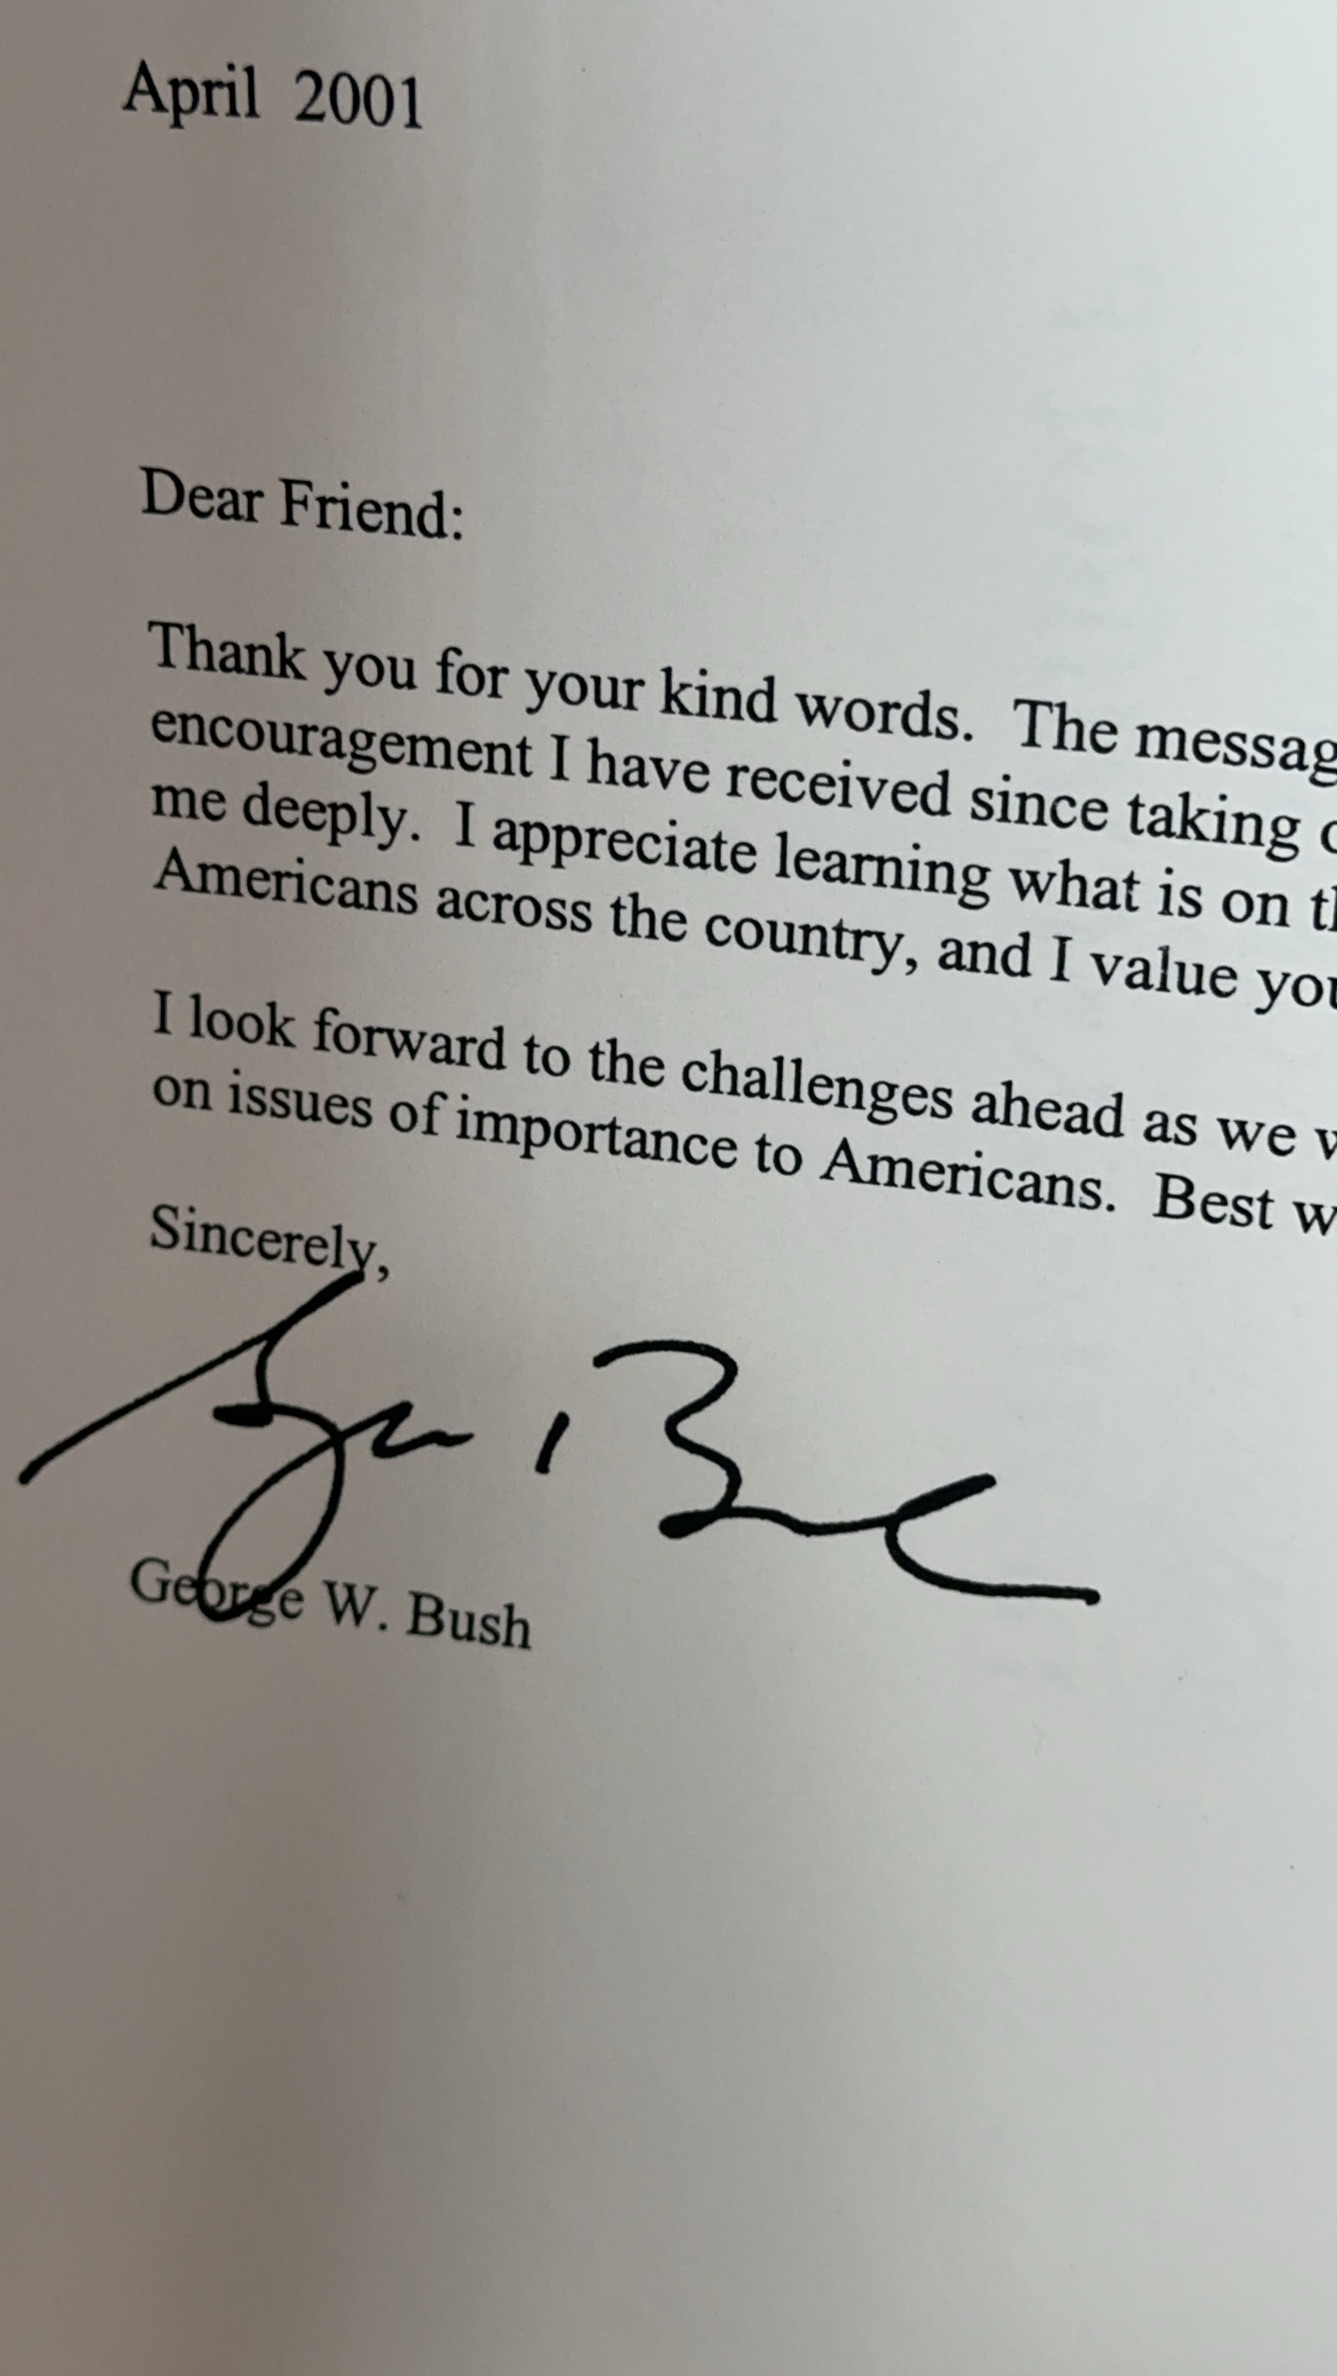 April 2001
Dear Friend:
Thank you for your kind words. The messag
encouragement I have received since taking
me deeply. I appreciate learning what is on
Americans across the country, and I value you
I look forward to the challenges ahead as we
on issues of importance to Americans. Best
Sincerely,
George W. Bush